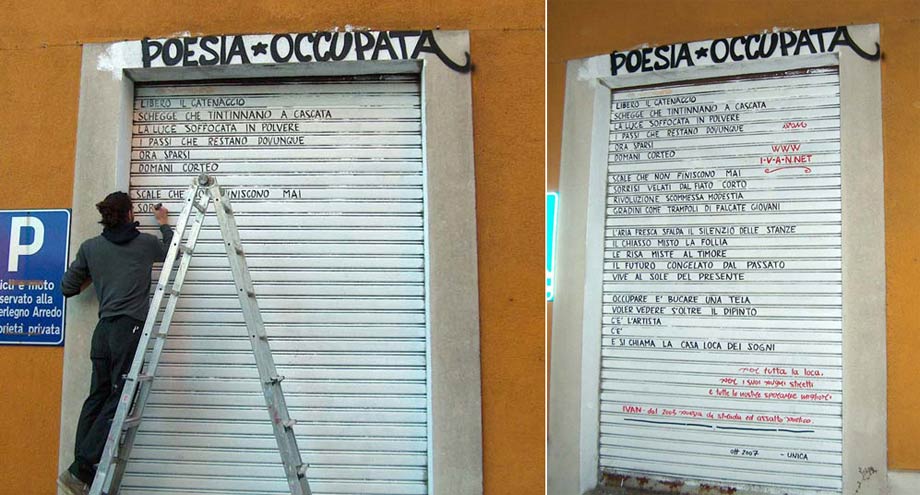 POESIA * OCCUPATA
LIBERO IL CATENACCIO
SCHEGGE CHE TINTINNANO A CASCATA
LA LUCE SOFFOCATA IN POLVERE
I PASSI CHE RESTANO DOVUNQUE
ORA SPARSI
DOMANI CORTEO
SCALE CHE NON FINISCONO MAI
SOR
P
cli e moto
servato alla
erlegno Arredo
oprietà privata
POESIA * OCCUPATA
LIBERO IL CATENACCIO
SCHEGGE CHE TINTINNANO A CASCATA
LA LUCE SOFFOCATA IN POLVERE
I PASSI CHE RESTANO DOVUNQUE
ORA SPARSI
DOMANI CORTEO
WWW
I-V-A-N.NET
SCALE CHE NON FINISCONO MAI
SORRISI VELATI DAL FIATO CORTO
RIVOLUZIONE SCOMMESSA MODESTIA
GRADINI COME TRAMPOLI DI FALCATE GIOVANI
L'ARIA FRESCA SFALDA IL SILENZIO DELLE STANZE
IL CHIASSO MISTO LA FOLLIA
LE RISA MISTE AL TIMORE
IL FUTURO CONGELATO DAL PASSATO
VIVE AL SOLE DEL PRESENTE
OCCUPARE E' BUCARE UNA TELA
VOLER VEDERE S'OLTRE IL DIPINTO
C'E' L'ARTISTA
C'E'
E SI CHIAMA LA CASA LOCA DEI SOGNI
per tutta la loca.
per i suoi sogni stretti
e tutte le nostre speranze migliori.
IVAN - dal 2003 poesia di strada ed assalto poetico.
ott 2007 - UNICA